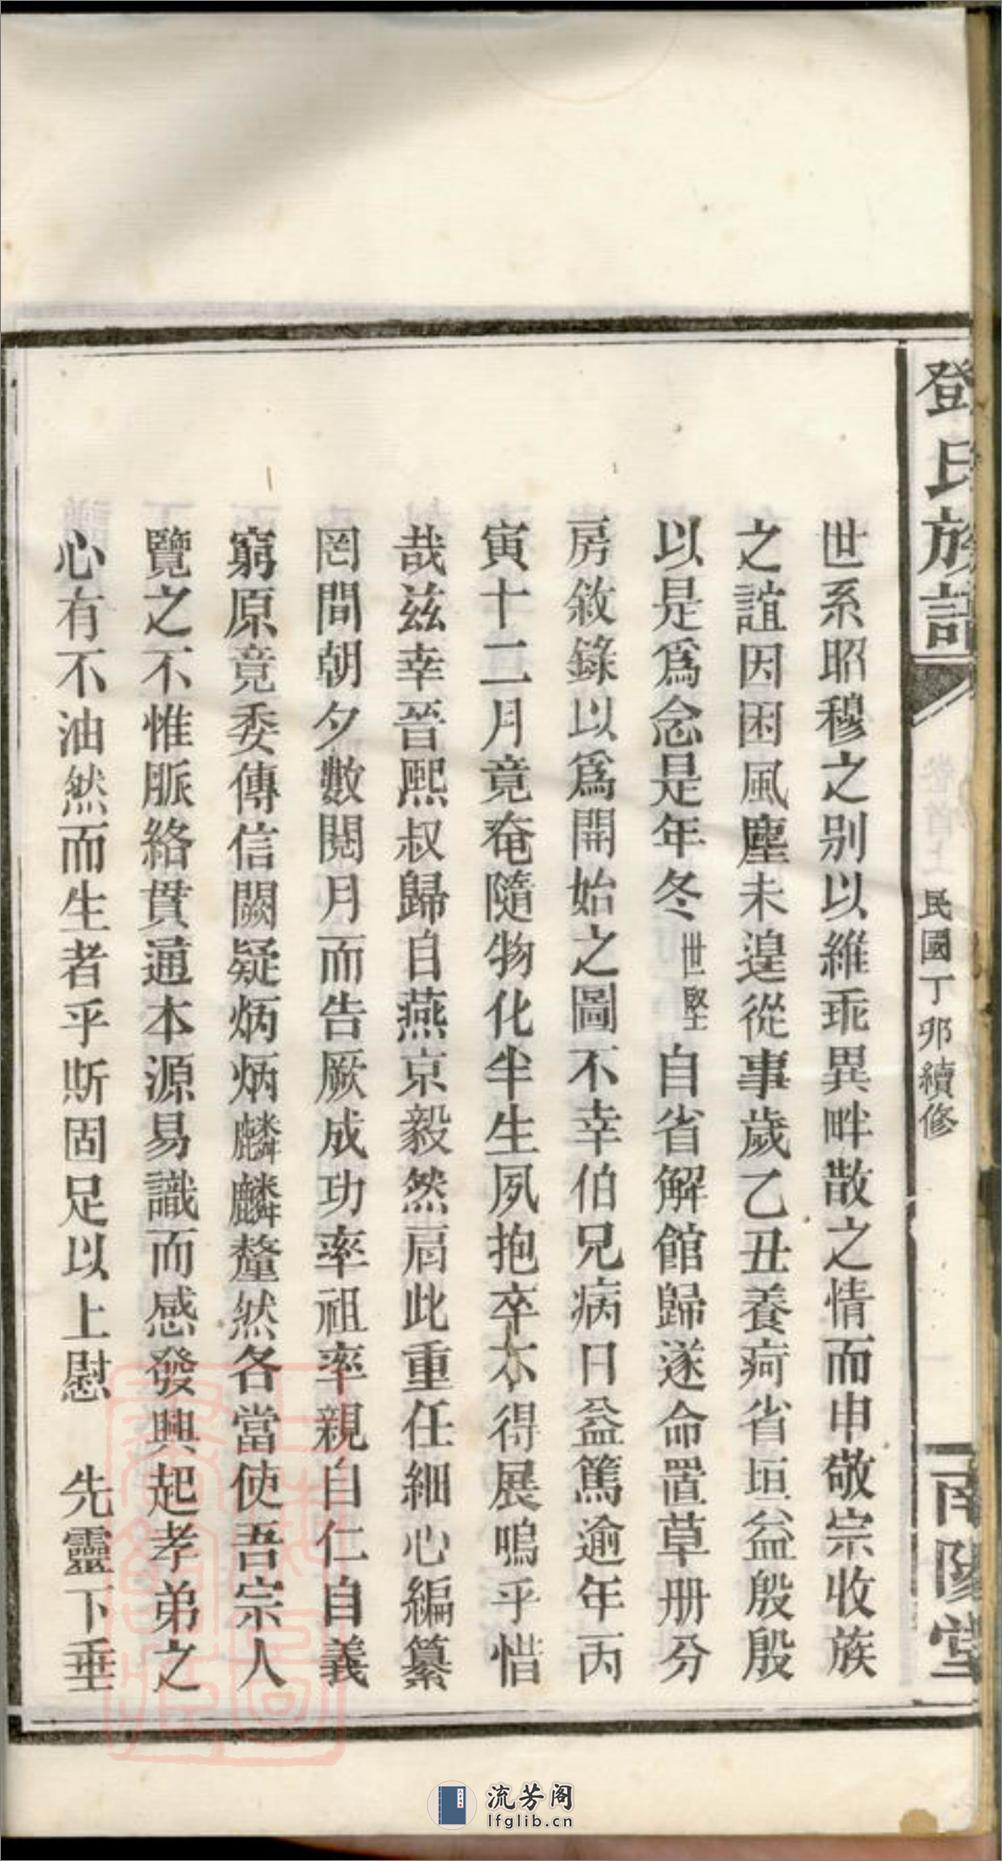 鄧氏族譜
民國丁卯續修
南陽堂
世系昭穆之別以維乖異畔散之情而申敬宗收族
之誼因困風塵未遑從事歲乙丑養疴省垣益殷殷
以是爲念是年冬世堅自省解館歸遂命置草册分
房敘錄以爲開始之圖不幸伯兄病日益篤逾年丙
寅十二月竟奄隨物化半生夙抱卒不得展嗚乎惜
哉茲幸晉熙叔歸自燕京毅然肩此重任細心編纂
罔間朝夕數閱月而告厥成功率祖率親自仁自義
窮原竟委傳信闕疑炳炳麟麟釐然各當使吾宗人
覽之不惟脈絡貫通本源易識而感發興起孝弟之
心有不油然而生者乎斯固足以上慰 先靈下垂
流芳阁
lfglib.cn